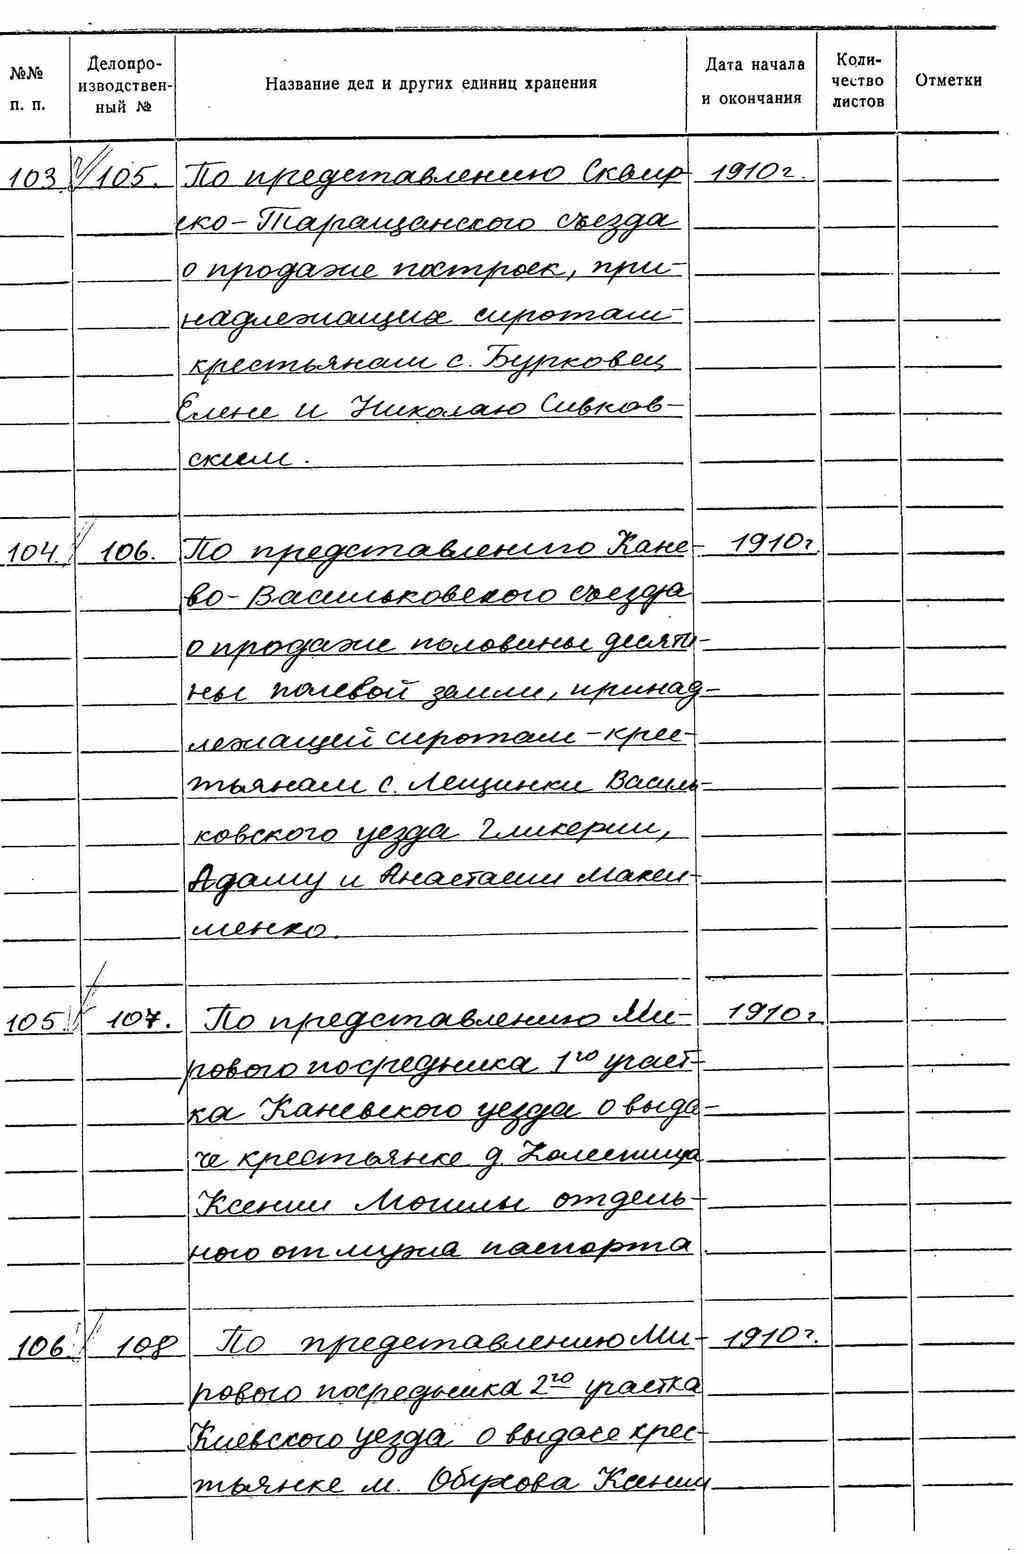 №№ п. п. Делопроизводствен-ный № Название дел и других единиц хранения Дата начала и окончания Коли-чество листов Отметки
103 105. По представлению Сквир- 1910г.
ско-Таращанского съезда
о продаже построек, при-
надлежащих сиротам-
крестьянам с. Бурковец
Елене и Николаю Сивков-
ским.
104. 106. По представлению Кане- 1910г
во-Васильковского съезда
о продаже половины десяти-
ны полевой земли, принад-
лежащей сиротам-крес-
тьянам с. Лещинки Василь-
ковского уезда Гликерии,
Адаму и Анастасии Макси-
менко.
105 107. По представлению Ми- 1910г
рового посредника 1го участ-
ка Каневского уезда о выда-
че крестьянке д. Колесища
Ксении Могилы отдель-
ного от мужа паспорта
106. 108 По представлению Ми- 1910г.
рового посредника 2го участка
Киевского уезда о выдаче крес-
тьянке м. Обухова Ксении